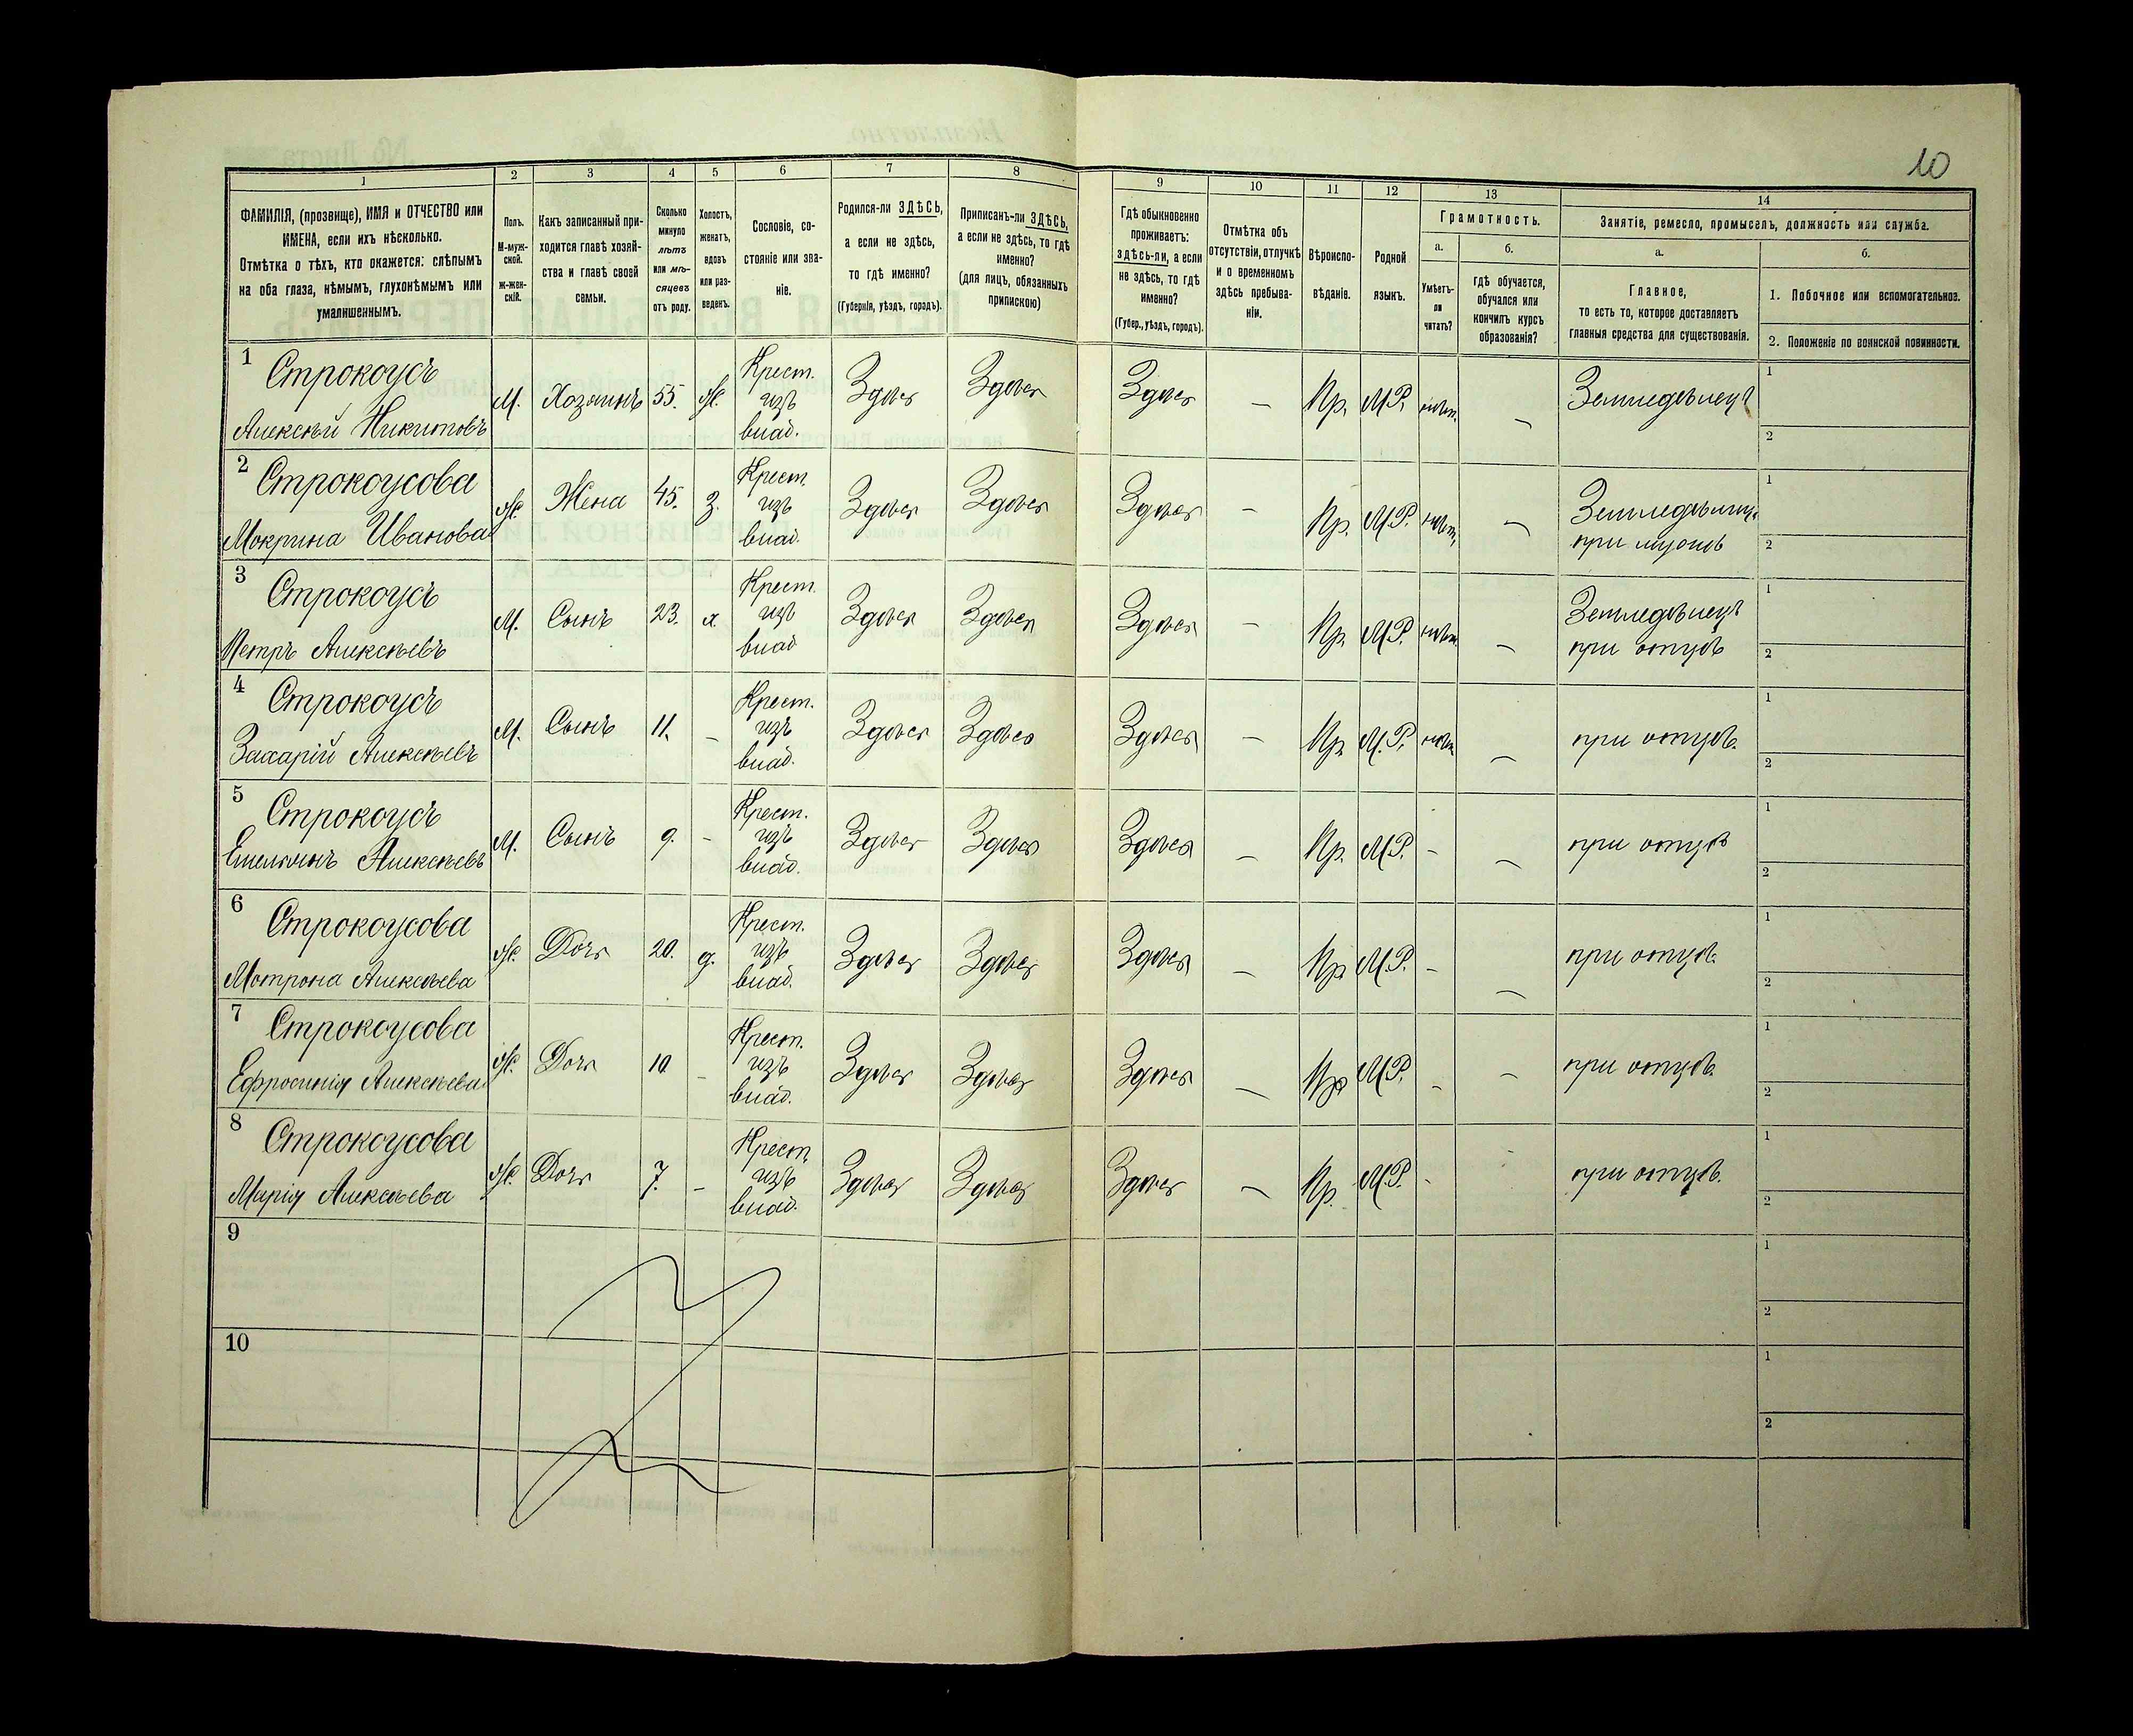 10
1 2 3 4 5 6 7 8 9 10 11 12 13 14
ФАМИЛІЯ, (прозвище), ИМЯ и ОТЧЕСТВО или
ИМЕНА, если ихъ нѣсколько.
Отмѣтка о тѣхъ, кто окажется: слѣпымъ
на оба глаза, нѣмымъ, глухонѣмымъ или
умалишеннымъ.
Полъ.
М-муж-
ской.
ж-жен-
скій.
Какъ записанный при-
ходится главѣ хозяй-
ства и главѣ своей
семьи.
Сколько
минуло
лѣтъ
или мѣ-
сяцевъ
отъ роду.
Холостъ,
женатъ,
вдовъ
или раз-
веденъ.
Сословіе, со-
стояніе или зва-
ніе.
Родился-ли ЗДѢСЬ,
а если не здѣсь,
то гдѣ именно?
(Губернія, уѣздъ, городъ).
Приписанъ-ли ЗДѢСЬ,
а если не здѣсь, то гдѣ
именно?
(для лицъ, обязанныхъ
припискою)
Гдѣ обыкновенно
проживаетъ:
здѣсь-ли, а если
не здѣсь, то гдѣ
именно?
(Губер., уѣздъ, городъ).
Отмѣтка объ
отсутствіи, отлучкѣ
и о временномъ
здѣсь пребыва-
ніи.
Вѣроиспо-
вѣданіе.
Родной
языкъ.
Грамотность.
а.
Умѣетъ-
ли
читать?
б.
гдѣ обучается,
обучался или
кончилъ курсъ
образованія?
Занятіе, ремесло, промыселъ, должность или служба.
а.
Главное,
то есть то, которое доставляетъ
главныя средства для существованія.
б.
1. Побочное или вспомогательное.
2. Положеніе по воинской повинности.
1 Строкоусъ
Алексѣй Никитовъ М. Хозяинъ 55. Ж. Крест. изъ влад. Здѣсь Здѣсь Здѣсь — Пр. М.Р. нѣт. — Земледѣлецъ 1 2
2 Строкоусова
Мокрина Иванова Ж. Жена 45. З. Крест. изъ влад. Здѣсь Здѣсь Здѣсь — Пр. М.Р. нѣт. — Земледѣлица
при мужѣ 1 2
3 Строкоусъ
Петръ Алексѣевъ М. Сынъ 23. х. Крест. изъ влад Здѣсь Здѣсь Здѣсь — Пр. М.Р. нѣт. — Земледѣлецъ
при отцѣ 1 2
4 Строкоусъ
Захарій Алексѣевъ М. Сынъ 11. — Крест. изъ влад. Здѣсь Здѣсь Здѣсь — Пр. М.Р. нѣт. — при отцѣ. 1 2
5 Строкоусъ
Емельянъ Алексѣевъ М. Сынъ 9. - Крест. изъ влад. Здѣсь Здѣсь Здѣсь — Пр. М.Р. - — при отцѣ 1 2
6 Строкоусова
Мотрона Алексѣева Ж. Дочь 20. д. Крест. изъ влад. Здѣсь Здѣсь Здѣсь — Пр М.Р. - — при отцѣ. 1 2
7 Строкоусова
Ефросинія Алексѣева Ж. Дочь 10 — Крест. изъ влад. Здѣсь Здѣсь Здѣсь — Пр М.Р. - — при отцѣ. 1 2
8 Строкоусова
Марія Алексѣева Ж. Дочь 7. — Крест. изъ влад. Здѣсь Здѣсь Здѣсь — Пр. М.Р. - - при отцѣ. 1 2
9 1 2
10 1 2